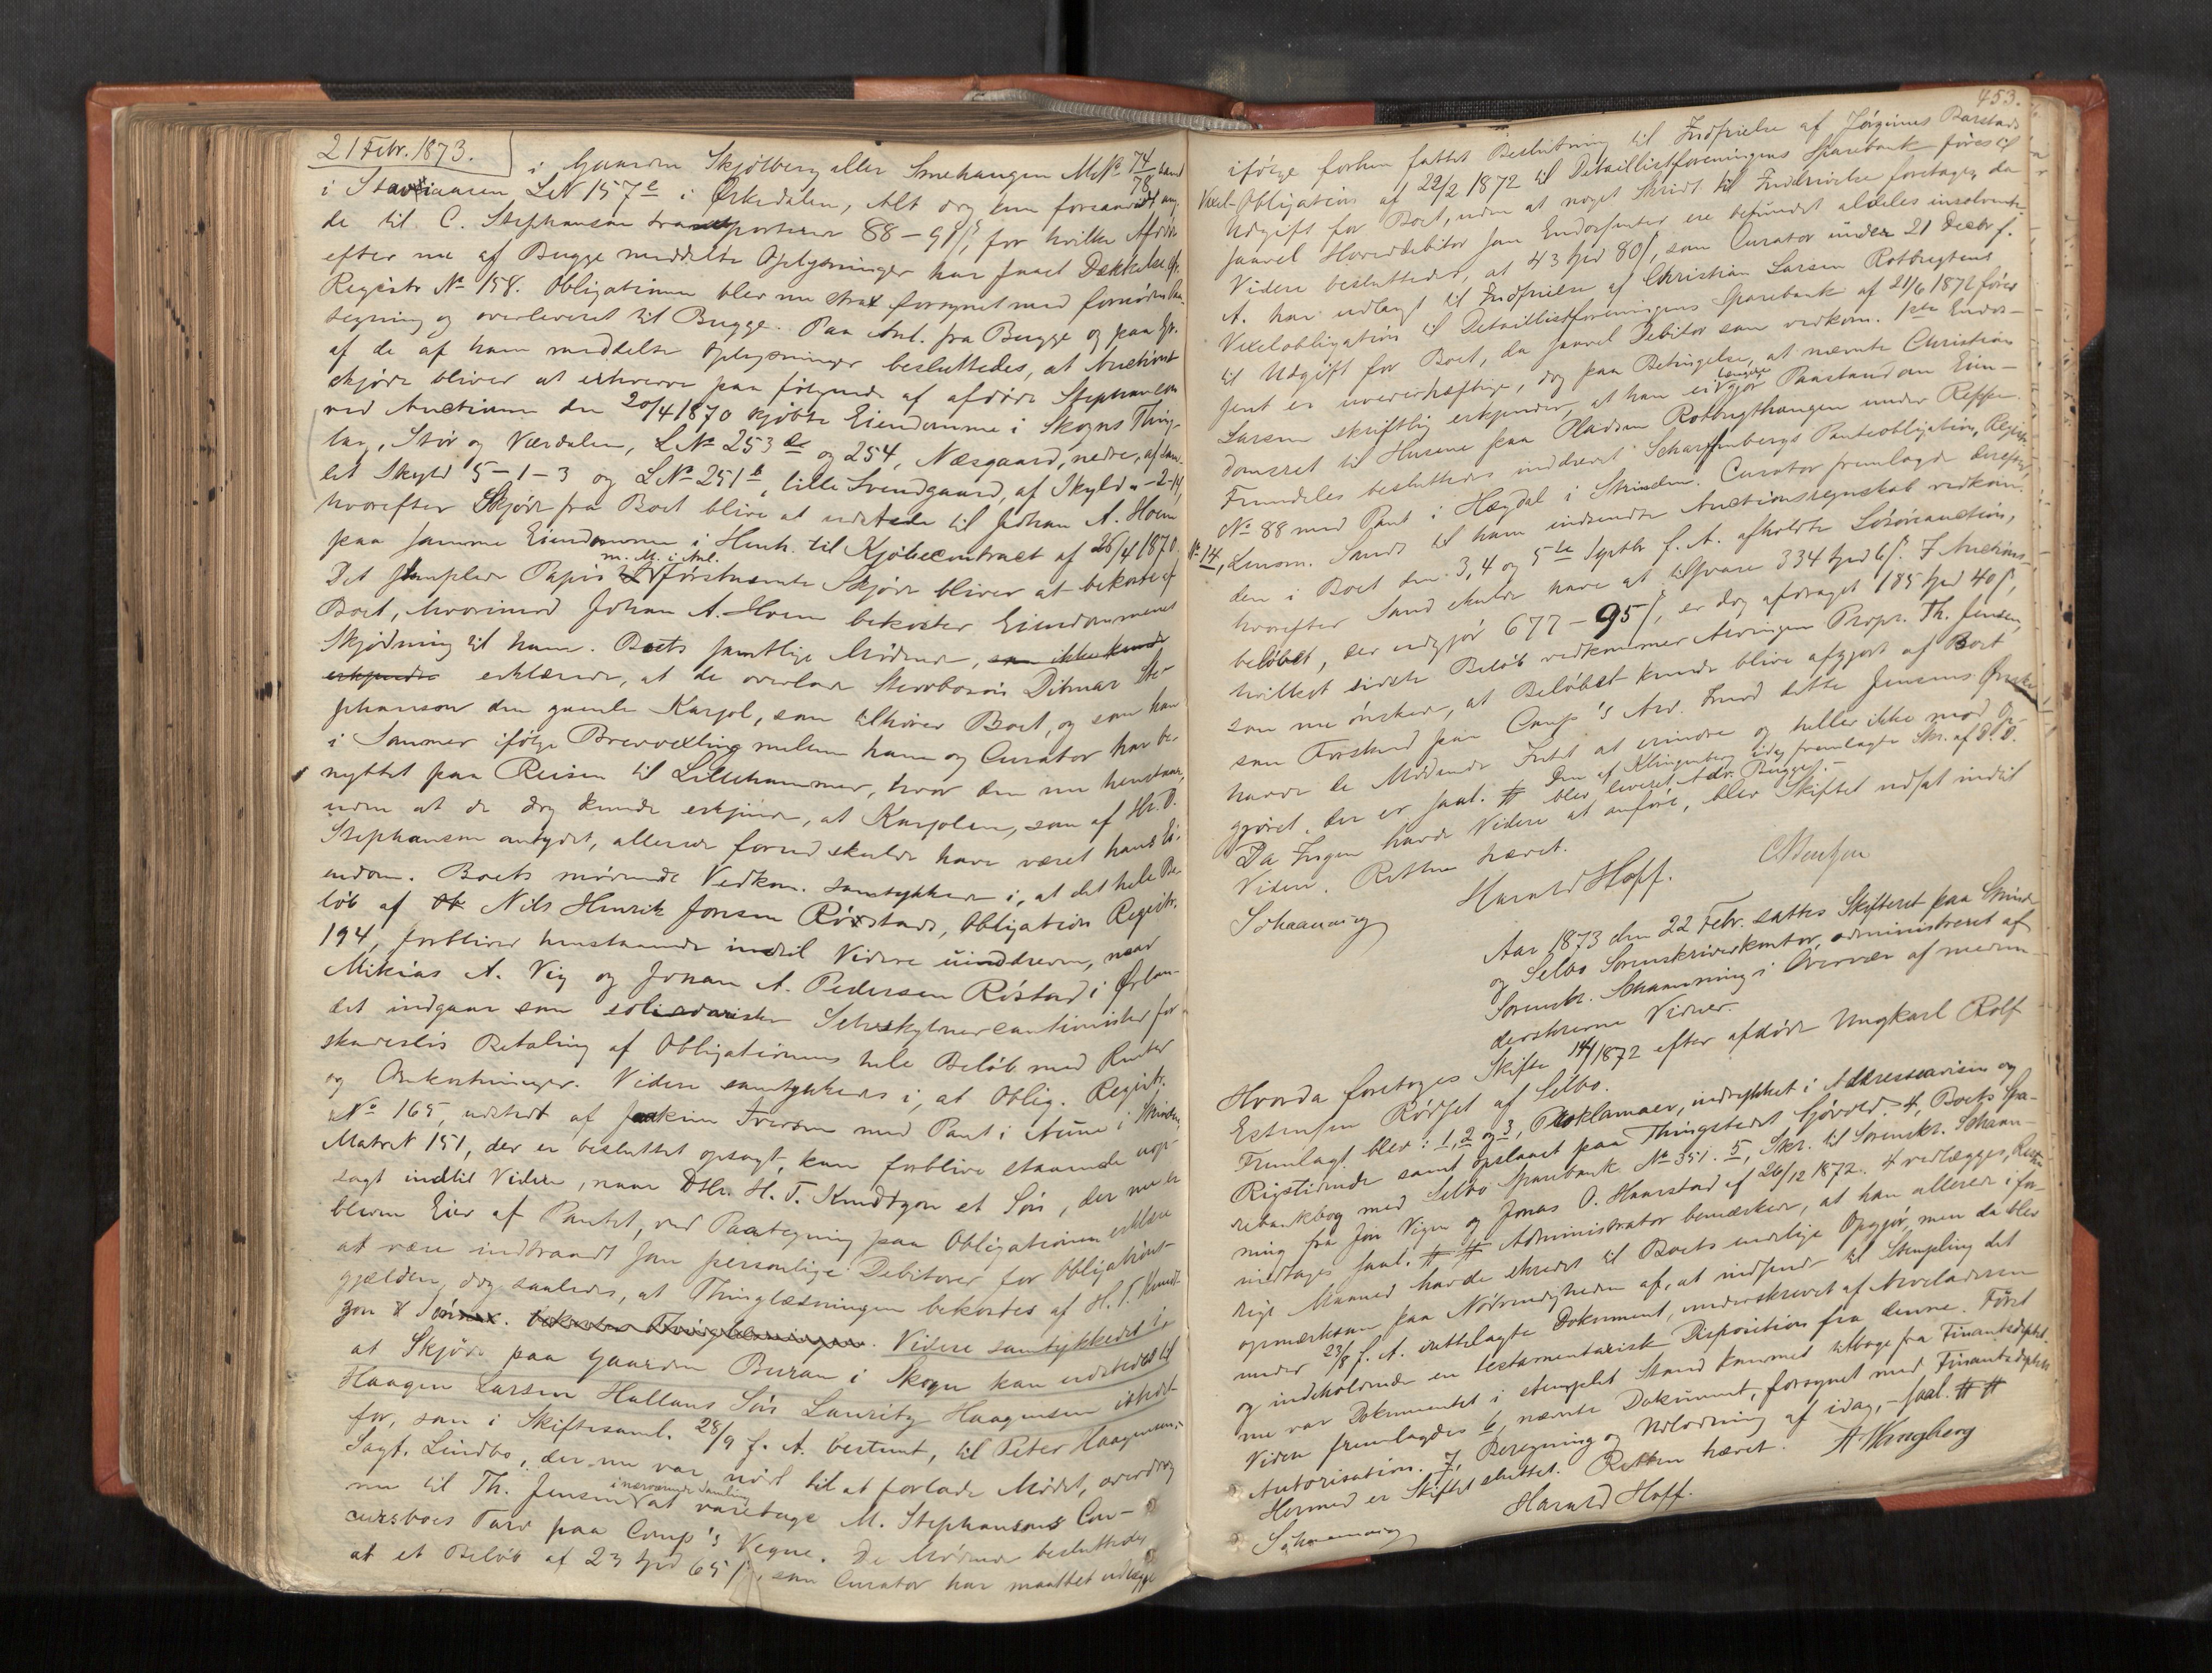 21 Febr. 1873.
i Gaarden Skjølberg eller Smehaugen M.№ 74/78
i Stavaasen L№ 157e i Ørkedalen, Alt dog kun forsaavidt an
de til C. Stephansen transporterede 88 – 91 β, for hvilke Afdøde
efter nu af Bugge meddelte Oplysninger har faaet Dækkelse, cfr.
Registr. № 158. Obligationen blev nu strax forsynet med fornøden Paa-
tegning og overleveret til Bugge. Paa Anl. fra Bugge og paa Gr.
af de af ham meddelte Oplysninger besluttedes, at Auctions-
skjøde bliver at erhverve paa følgende af afdøde Stephansen
ved Auctionen den 20/4 1870 kjøbte Eiendomme i Skogns Thing-
lag, Stør og Værdalen, L№ 253 og 254, Næsgaard, nedre, af sam-
let Skyld 5-1-3 og L№ 251b, lille Svendgaard, af Skyld „-2-14,
hvorefter Skjøde fra Boet blive at udstede til Johan A. Hoem
paa samme Eiendomme i Henh. til Kjøbecontract af 26/4 1870.
m. M. i Anl.
Det stemplede Papir til førstnævnte Skjøde bliver at bekoste af
Boet, hvorimod Johan A. Hoem bekoster Eiendommenes
Skjødning til ham. Boets samtlige Mødende, som ikke kunde
erkjende erklærede, at de overlade Stervbosøn Ditmar Ste-
phanson den gamle Karjol, som tilhører Boet, og som han
i Sommer ifølge Brevvexling mellem ham og Curator har be-
nyttet paa Reisen til Lillehammer, hvor den nu henstaar,
uden at de dog kunde erkjende, at Karjolen, som af Hr. D.
Stephanson antydet, allerede forud skulde have været hans Ei-
endom. Boets mødende Vedkom. samtykkede i, at det hele Be-
løb af Nils Henrik Jonsen Røstads, Obligation Registr.
194, forbliver henstaaende indtil Videre uinddreven, naar
Mikias A. Vig og Johan A. Pedersen Røstad i Ørlan-
det indgaar som solidariske Selvskyldnercautionister for
skadesløs Betaling af Obligationens hele Beløb med Renter
og Omkostninger. Videre samtykkedes i, at Oblig. Registr.
№ 165, udstedt af Joakim Iversen med Pant i Aune i Strinden,
Matr№ 151, der er besluttet opsagt, kan forblive staaende uop-
sagt indtil Videre, naar DHr. H. T. Knudtzon et Søn, der nu er
bleven Eier af Pantet, ved Paategning paa Obligationen erklære
at være indtraadt som personlige Debitorer for Obligations-
gjælden, dog saaledes, at Thinglæsningen bekostes af H. T. Knudt-
zon & Sønner. bekoster Thinglæsningen. Videre samtykkedes i,
at Skjøde paa Gaarden Buran i Skogn kan udstedes til
Haagen Larsen Hallans Søn Lauritz Haagensen istedet-
for, som i Skiftesaml. 28/9 f. A. bestemt, til Peter Haagensen.
Sagf. Lindbo, der nu var nødt til at forlade Mødet, overdrog
i nærværende Samling
nu til Th. Jensen at varetage M. Stephansons Con-
cursboes Tarv paa Comp's Vegne. De Mødende besluttede,
at et Beløb af 23 Spd 65 β, som Curator har maattet udlægge

453.
ifølge forhen fattet Beslutning til Indfrielse af Jørginus Barstads
Vexel-Obligation af 22/2 1872 til Detaillistforeningens Sparebank føres til
Udgift for Boet, uden at noget Skridt til Inddrivelse foretages, da
saavel Hoveddebitor som Endossenter ere befundet aldeles insolvente.
Videre besluttedes, at 43 Spd 80 β, som Curator under 21 Decbr f.
A. har udlagt til Indfrielse af Christian Larsen Rotbugtens
Vexelobligation til Detaillistforeningens Sparebank af 21/6 1872 føres
til Udgift for Boet, da saavel Debitor som vedkom. 1ste Endos-
sent er uvederhæftige, dog paa Betingelse, at nævnte Christian
længere
Larsen skriftlig erkjender, at han ei gjør Paastand om Eien-
domsret til Husene paa Pladsen Rotbugthaugen under Reppe.
Fremdeles besluttedes inddrevet Scharffenbergs Panteobligation, Registr.
№ 88 med Pant i Hægdal i Strinden. Curator fremlagde derefter,
№ 14, Lensm. Sands til ham indsendte Auctionsregnskab vedkom.
den i Boet den 3, 4 og 5te Septbr f. A. afholdte Løsøreauction,
hvorefter Sand skulde have at tilsvare 334 Spd 6 β. I Auctions-
beløbet, der udgjør 677 – 95 β, er dog afdraget 185 Spd 40 β,
hvilket sidste Beløb vedkommer Arvingen Propr. Th. Jensen,
som nu ønsker, at Beløbet kunde blive afgjort af Boet
som Forskud paa Comp's Arv. Imod dette Jensens Ønske
havde de Mødende Intet at erindre og heller ikke mod Op-
Den af Klingenberg idag fremlagte Skr. af D. D.
gjøret, der er saal. # blev leveret Adv. Bugge. –
Da Ingen havde Videre at anføre, blev Skiftet udsat indtil
Videre. Retten hævet.
Schaanning Harald Hoff.
Aar 1873 den 22 Febr. sattes Skifteret paa Strinde
og Selbo Sorenskriverkontor, administreret af
Sorenskr. Schaanning i Overvær af neden-
derskrevne Vidner.
Hvorda foretoges Skifte 14/1 1872 efter afdøde Ungkarl Rolf
Estensen Rødset af Selbo.
Fremlagt blev: 1, 2 og 3, Proklamaer, indrykket i Adresseavisen og
Rigstidende samt opslaaet paa Thingstedet Sjøvold. 4, Boets Spa-
rebankbog med Selbo Sparebank № 351. 5, Skr. til Sorenskr. Schaan-
ning fra Jon Vigen og Jonas O. Haarstad af 26/12 1872. 4 vedlægges, Resten
medtages saal. # # Administrator bemærker, at han allerede i for-
rige Maaned havde skredet til Boets endelige Opgjør, men da blev
opmærksom paa Nødvendigheden af, at indsende til Stempling det
under 23/8 f. A. rettelagte Dokument, underskrevet af Arveladeren
og indeholdende en testamentarisk Disposition fra denne. Først
nu var Dokumentet i stemplet Stand kommet tilbage fra Finantsdeptet.
Videre fremlagdes 6, nævnte Dokument, forsynet med Finantsdeptets
Autorisation. 7, Beregning og Udlodning af idag, – saal. # #
Hermed er Skiftet sluttet. Retten hævet.
Schaanning Harald Hoff.